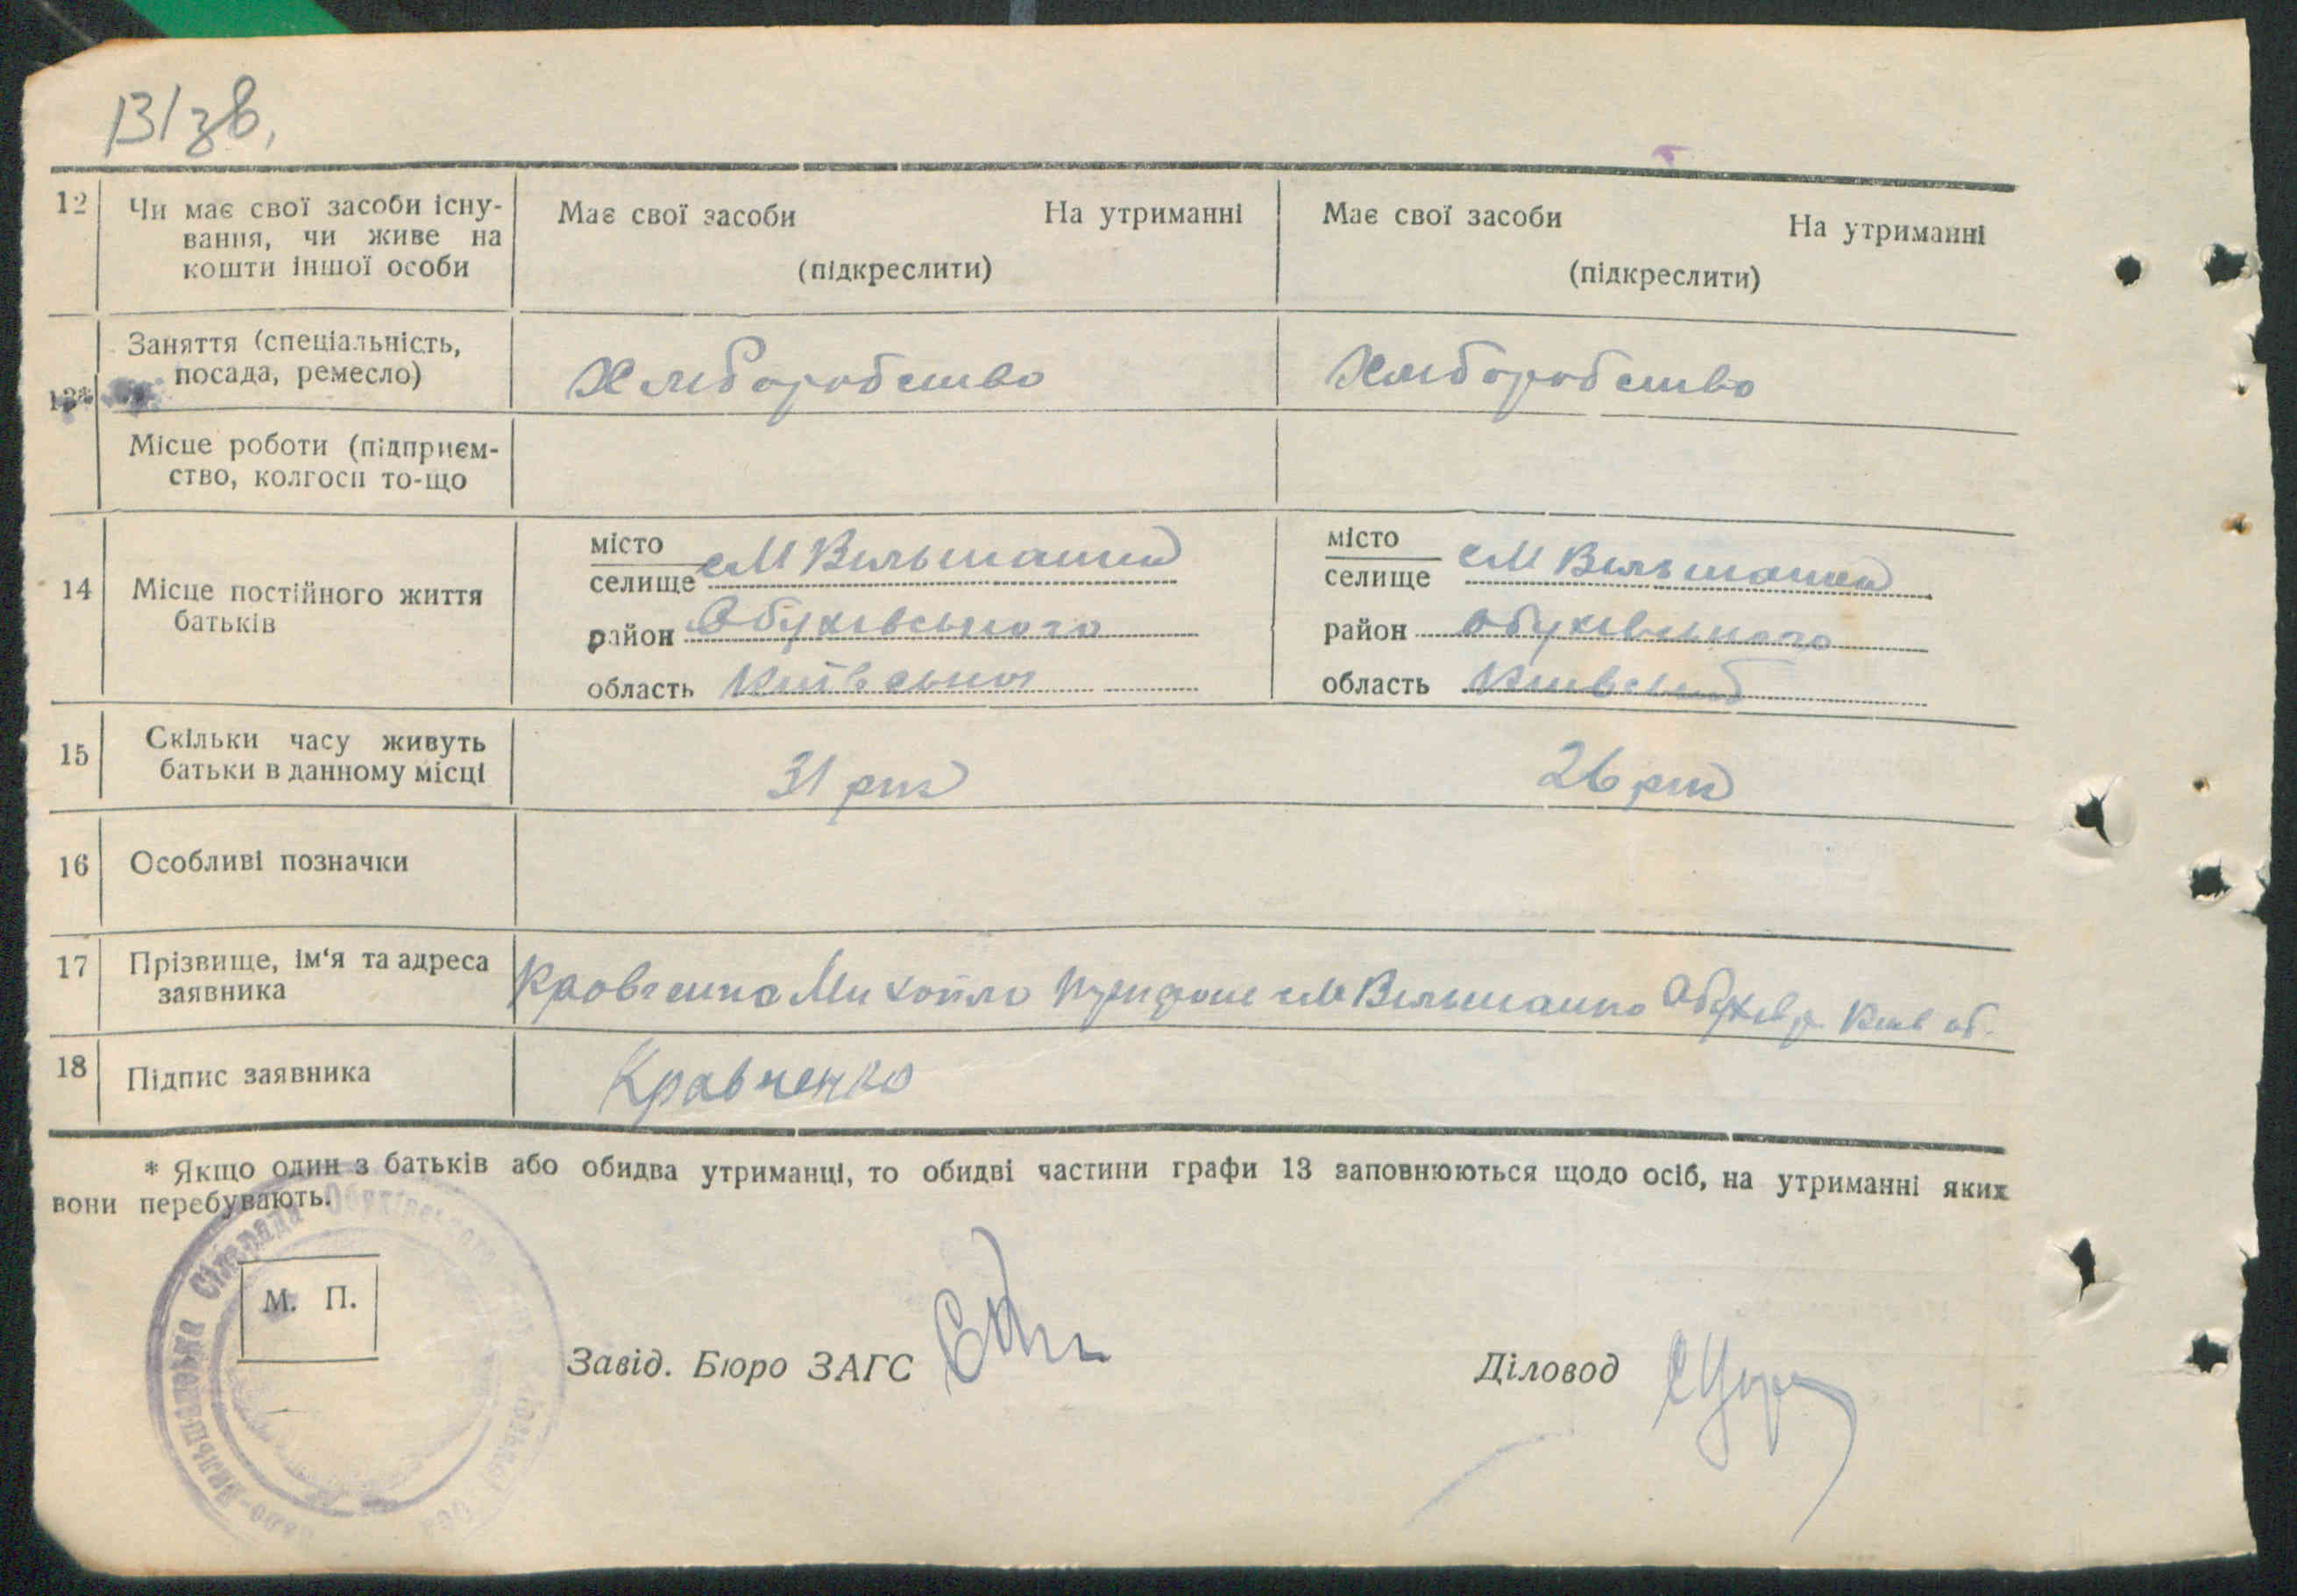 131зв.
12 Чи має свої засоби існу- Має свої засоби На утриманні Має свої засоби На утриманні
вання, чи живе на
кошти іншої особи (підкреслити) (підкреслити)
Заняття (спеціальність,
посада, ремесло) Хліборобство Хліборобство
13*
Місце роботи (підприєм-
ство, колгосп то-що
місто місто
селище см Вільшанка селище см Вільшанка
14 Місце постійного життя
батьків район Обухівського район Обухівського
область Київської область Київської
15 Скільки часу живуть
батьки в данному місці 31 рік 26 рік
16 Особливі позначки
17 Прізвище, ім'я та адреса
заявника Кравченко Михайло см Вільшанка Обухів р Киів об.
18 Підпис заявника Кравченко
* Якщо один з батьків або обидва утриманці, то обидві частини графи 13 заповнюються щодо осіб, на утриманні яких
вони перебувають.
Вільшанська Сільрада Обухівського
М. П.
Завід. Бюро ЗАГС
Діловод